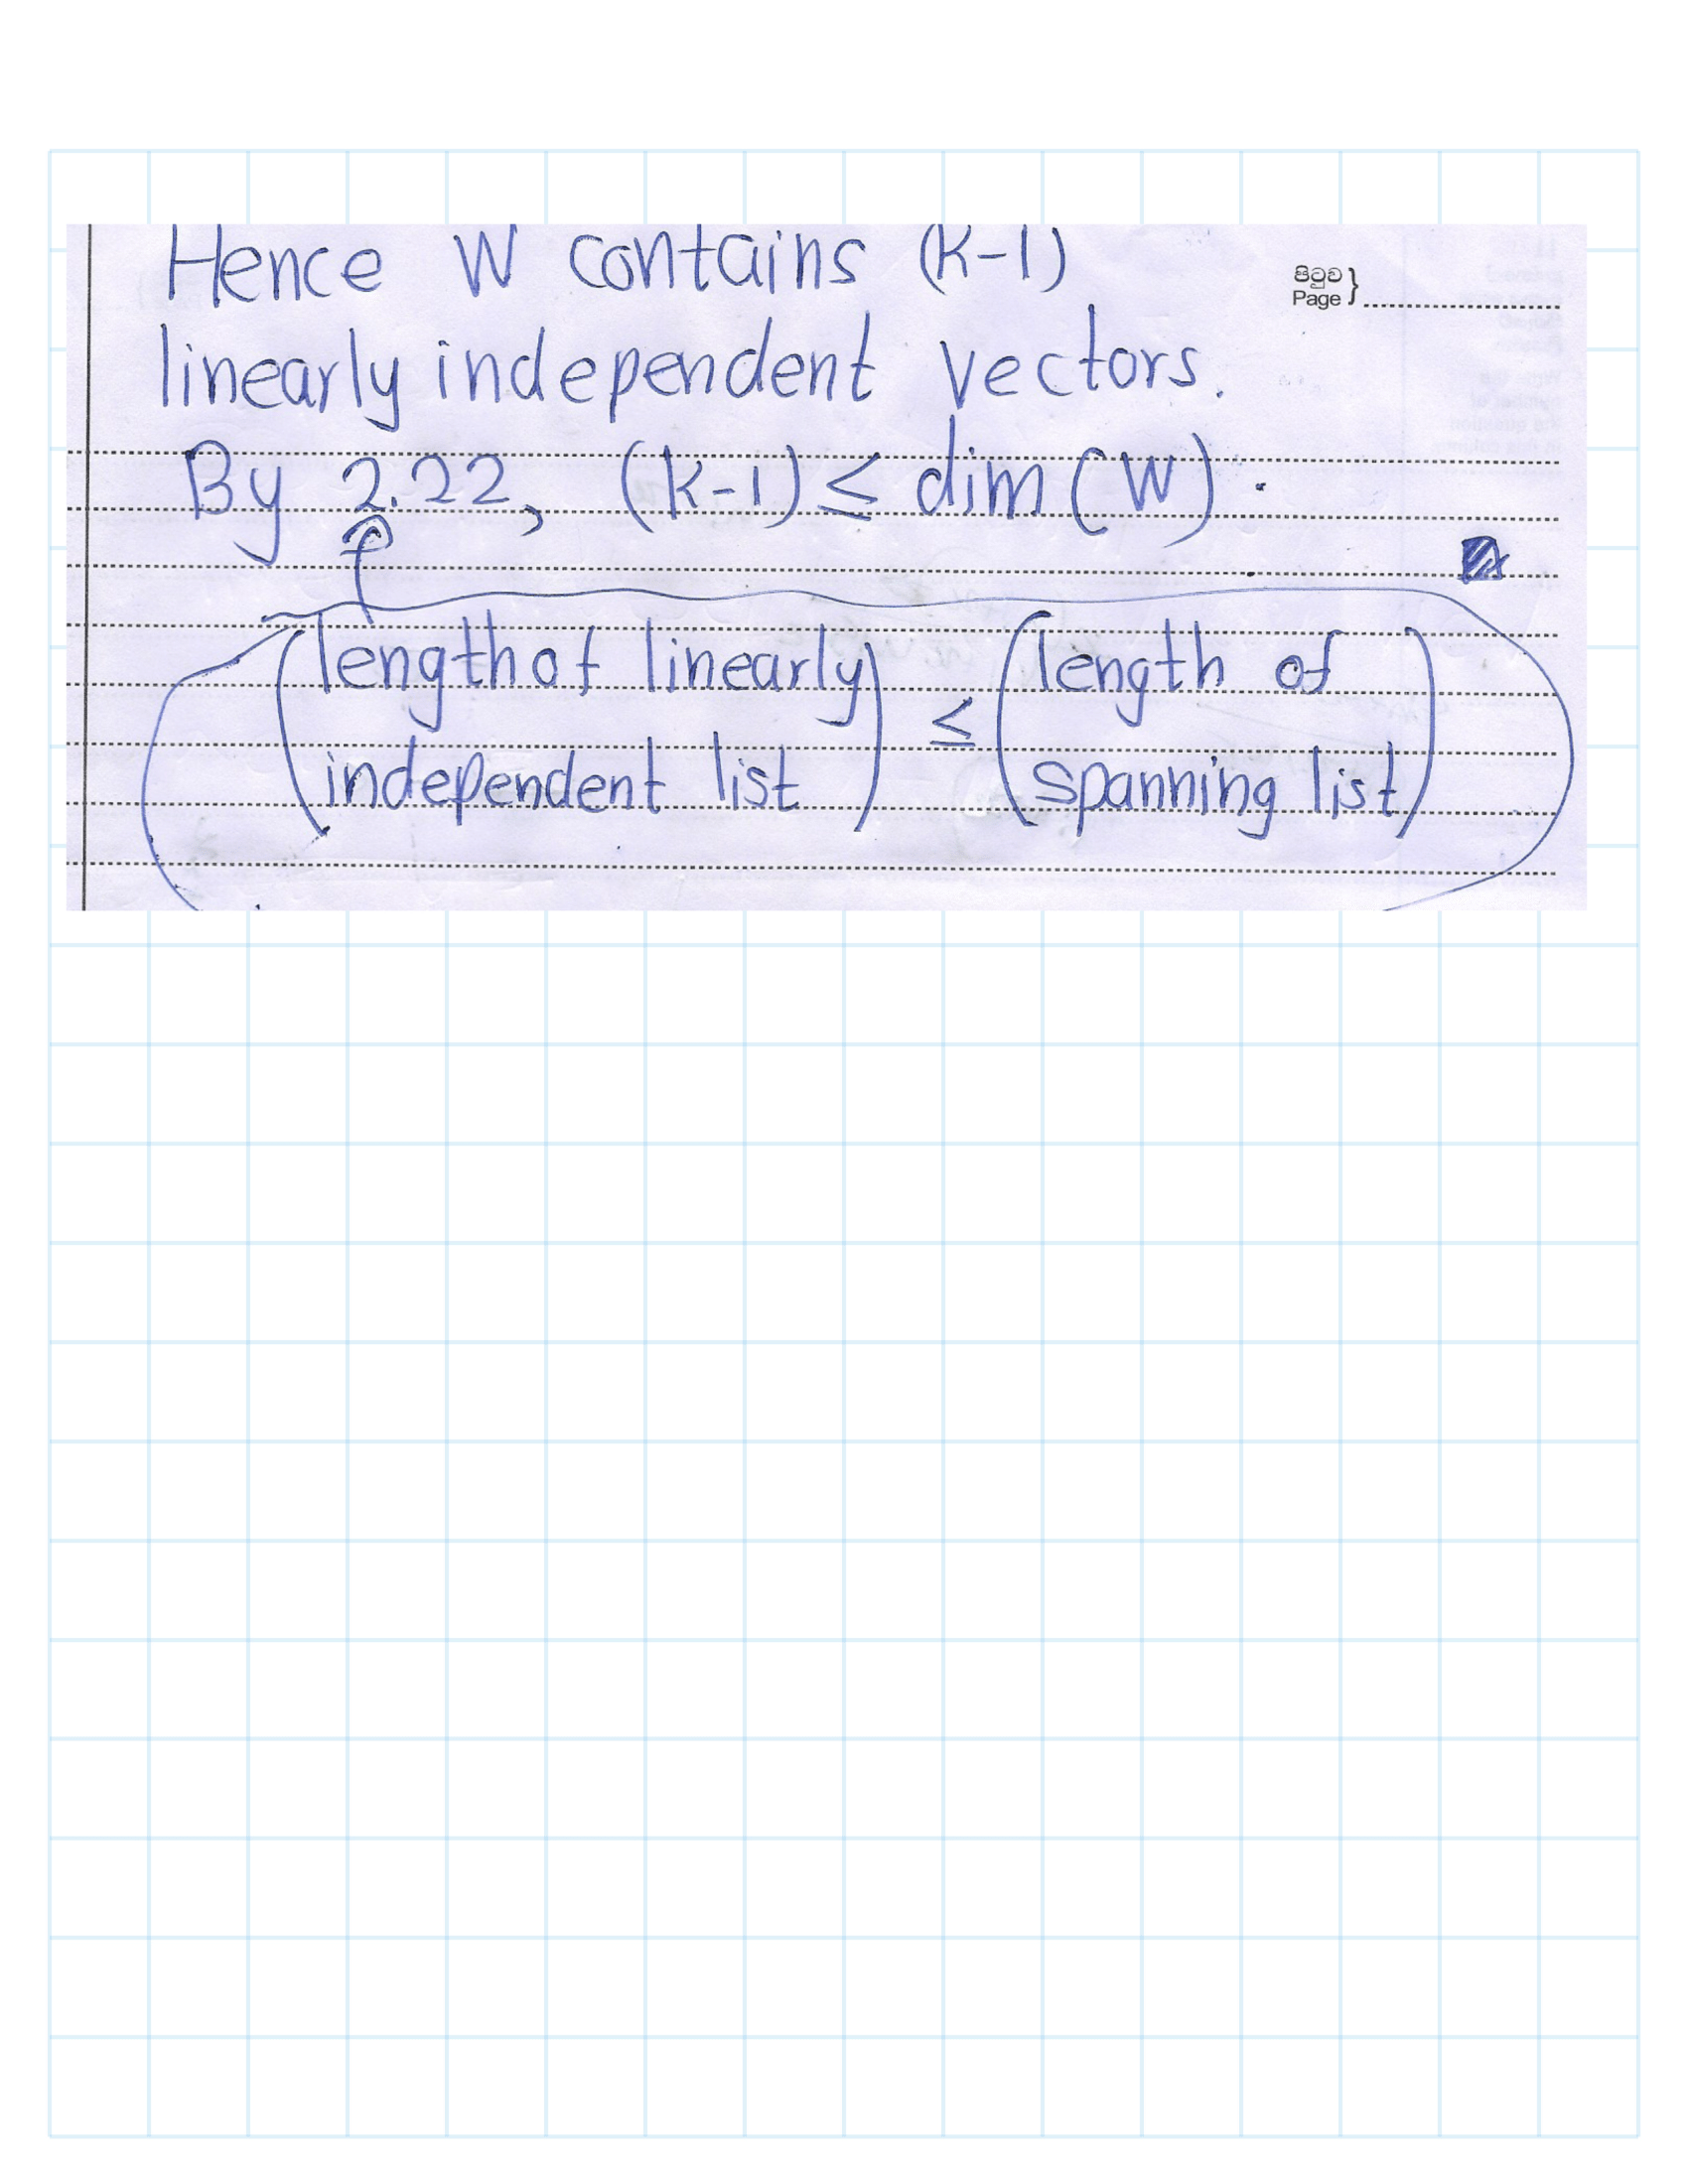 Hence W contains (k-1)
පිටුව
Page }
linearly independent vectors.
By 2.22, (k-1) ≤ dim (W).
(length of linearly independent list) ≤ (length of spanning list)